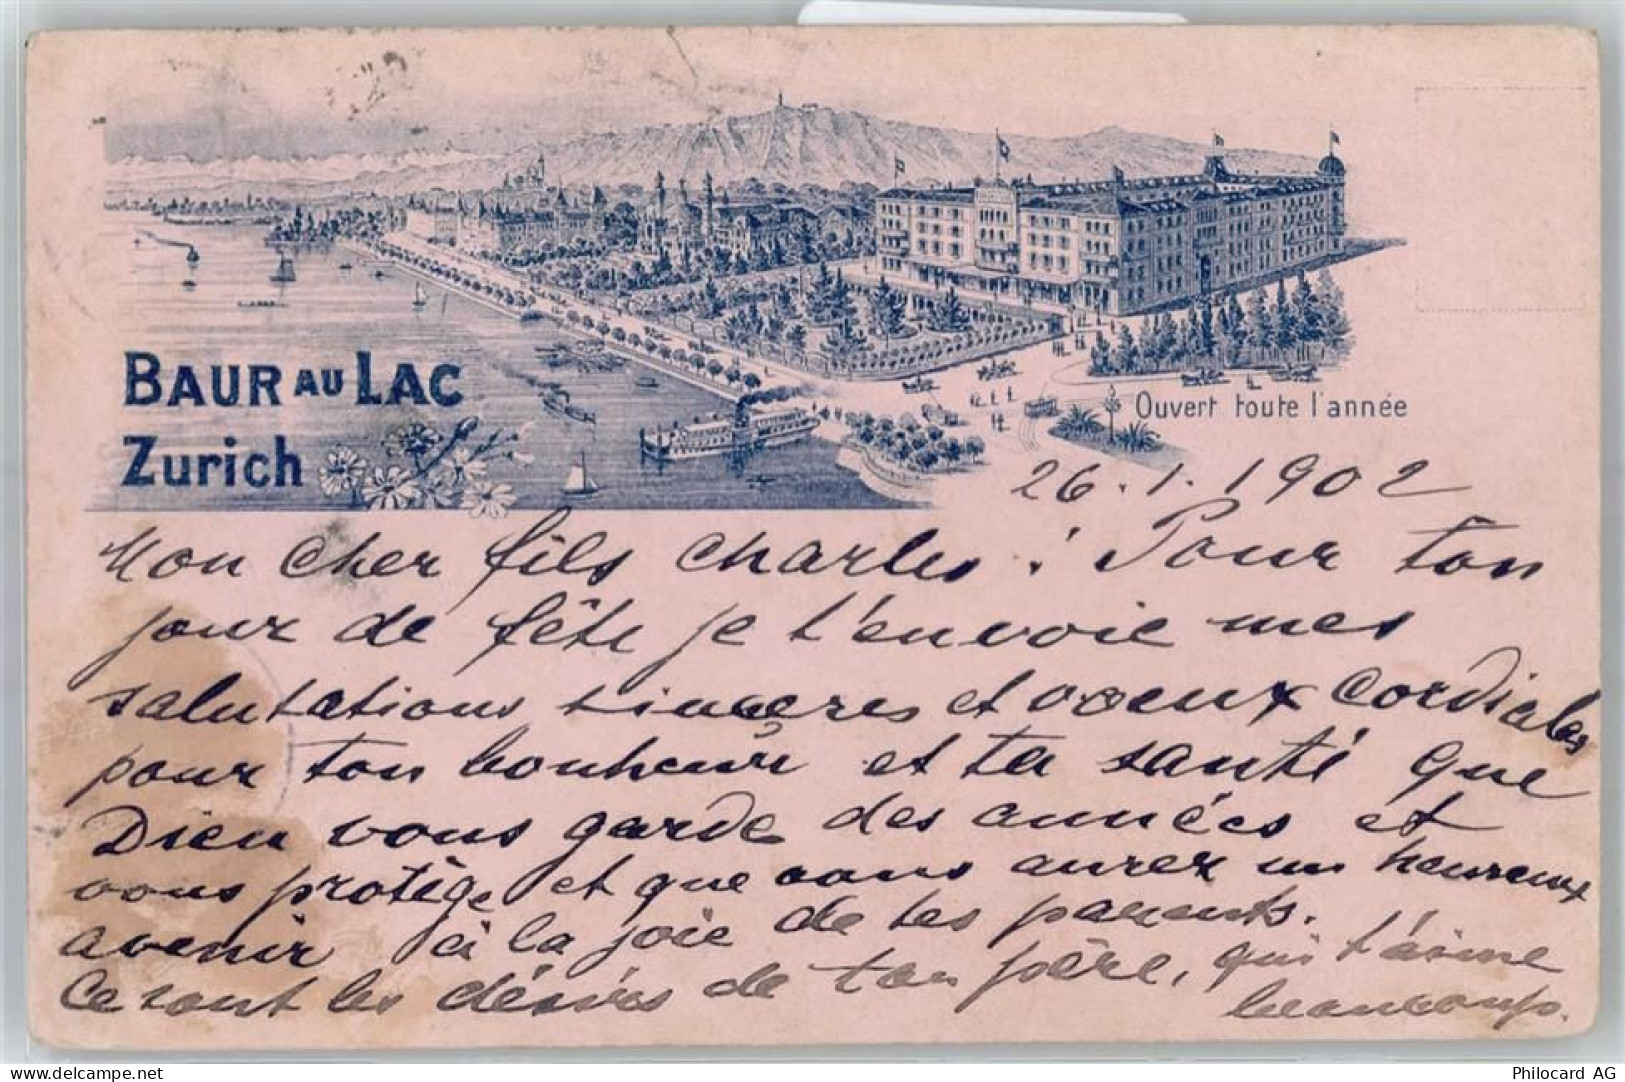 BAUR AU LAC
Zurich
Ouvert toute l'année
26.1.1902
Mon cher fils Charles! Pour ton
jour de fête je t'envoie mes
salutations sinceres et voeux cordiales
pour ton bonheur et ta santé que
Dieu vous garde des années et
vous protège et que vous aurez un heureux
avenir à la joie de tes parents.
Ce sont les désirs de ton père, qui t'aime
beaucoup.
www.delcampe.net
Philocard AG